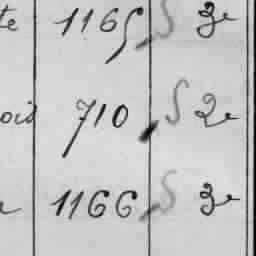 te 1165 S 3e
ois 710 S 2e
e 1166 S 3e